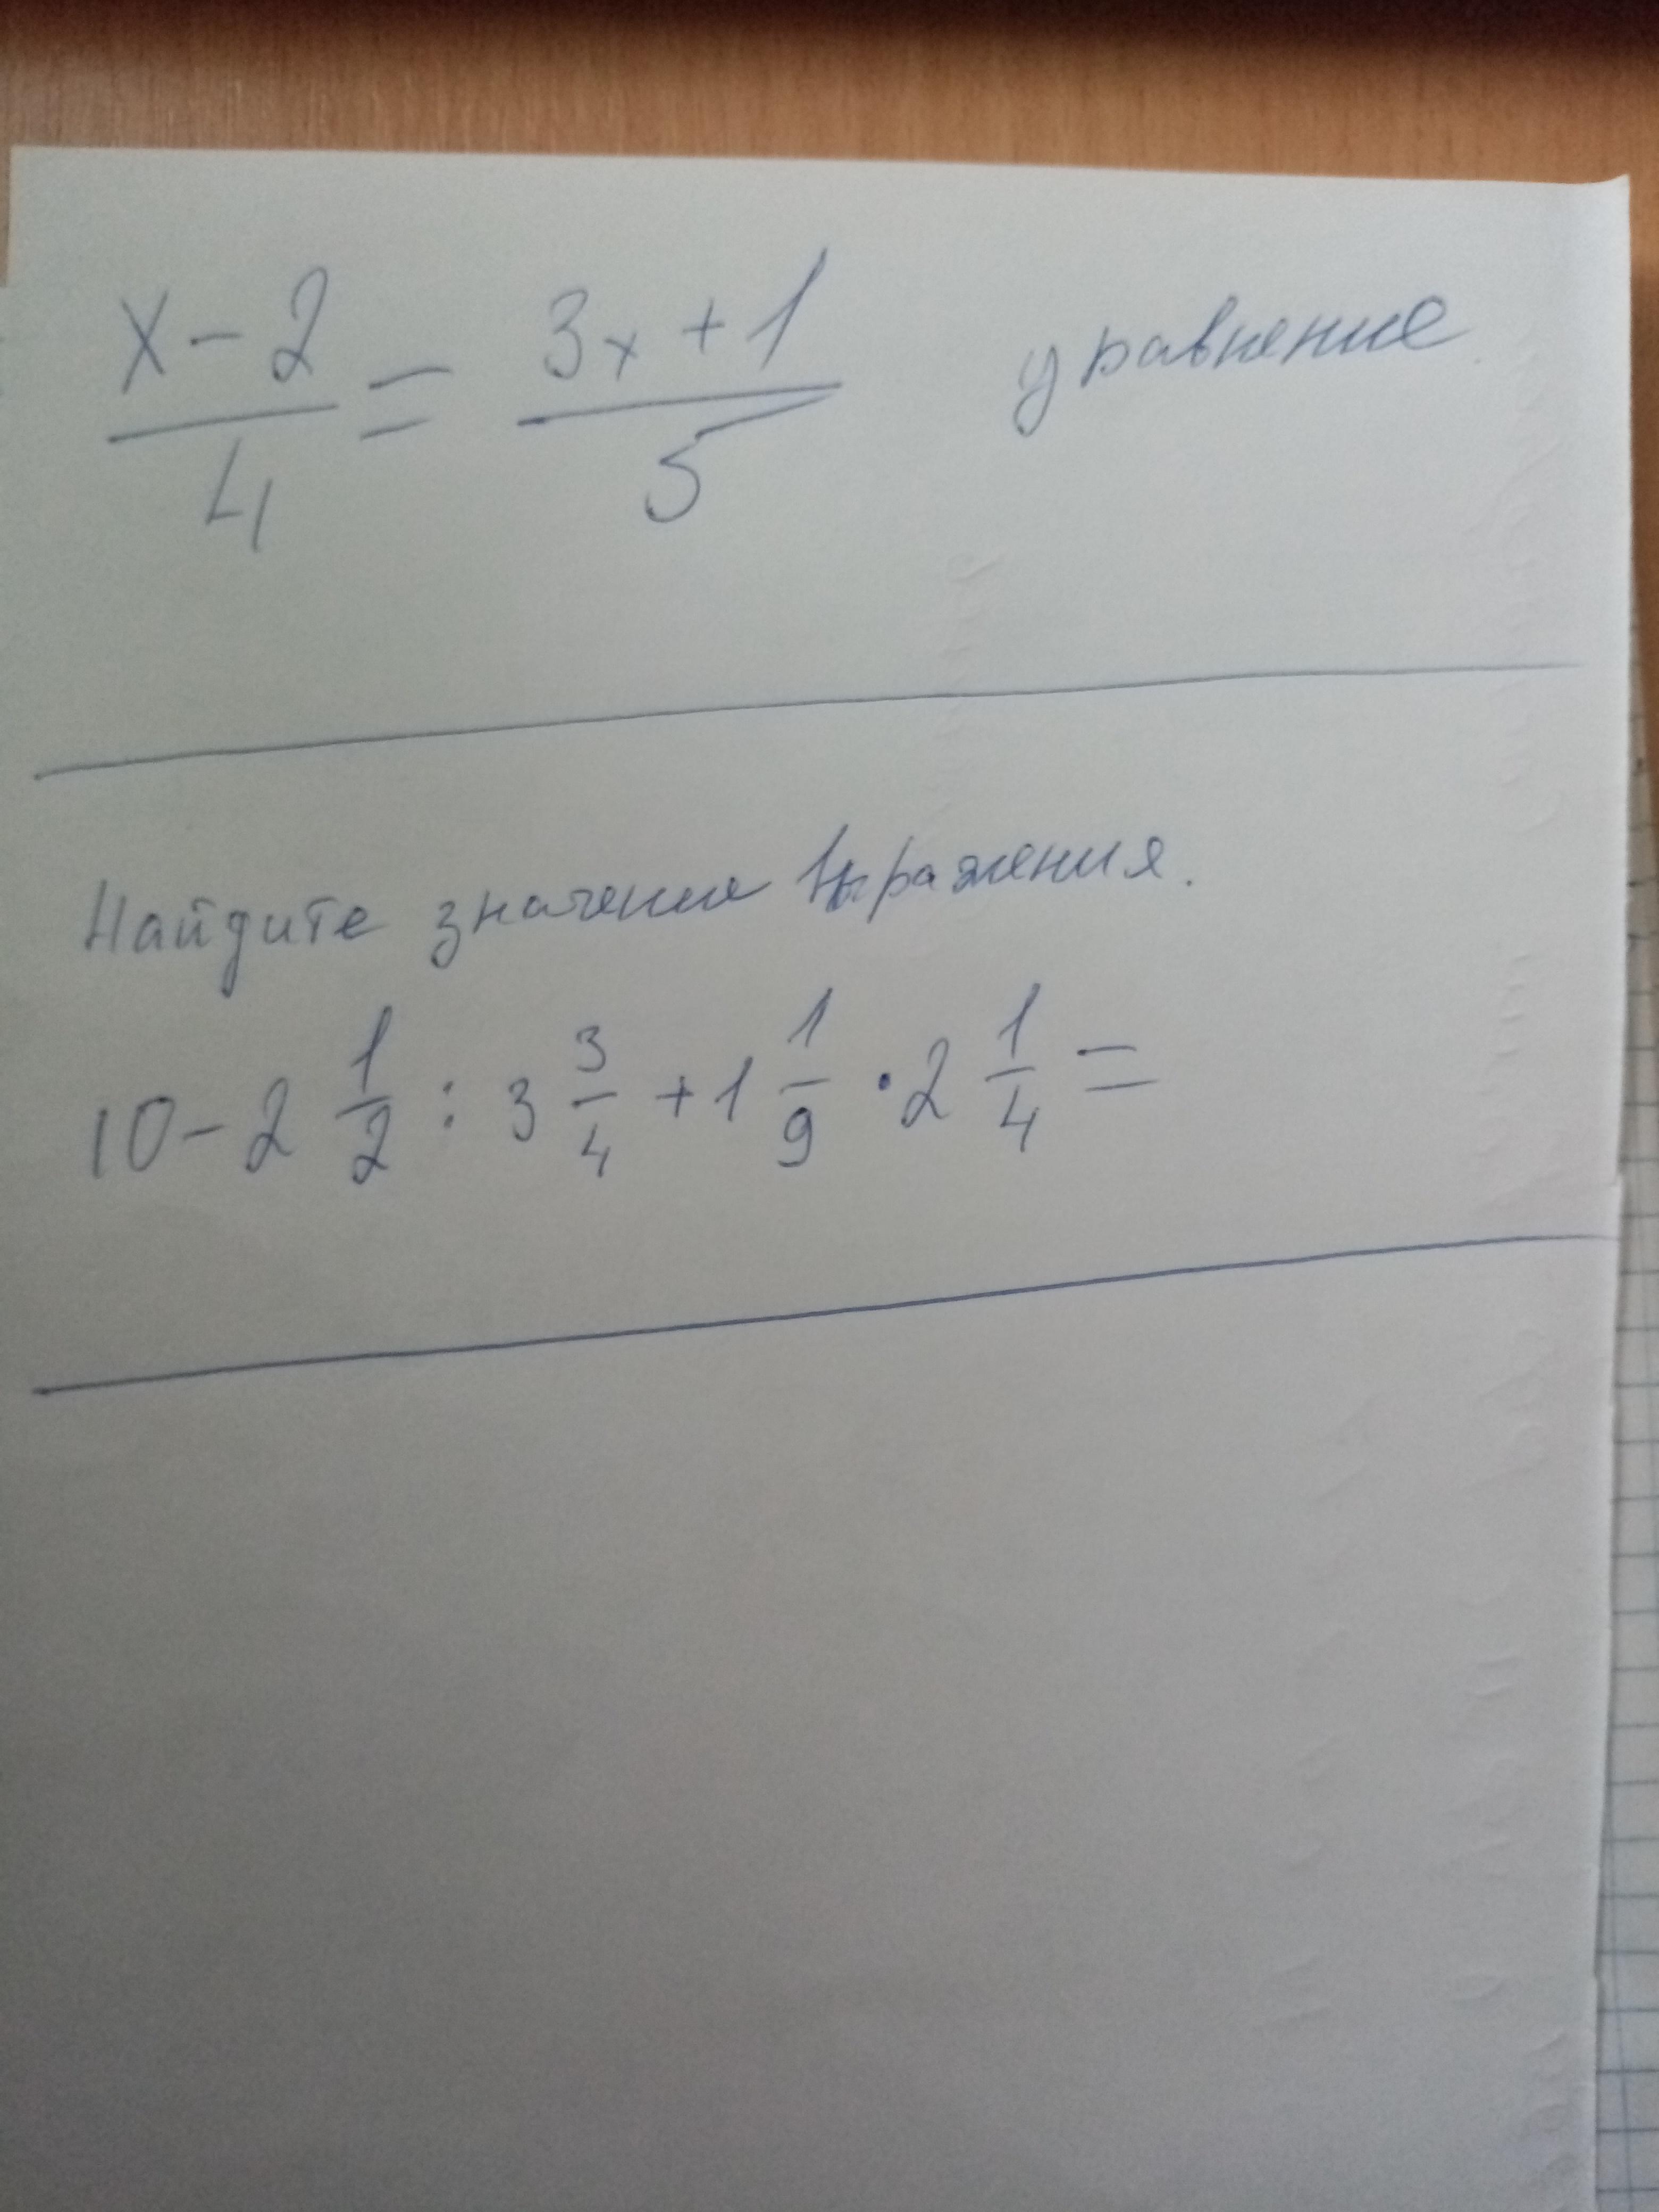 x - 2 / 4 = 3x + 1 / 5 уравнение
Найдите значение выражения.
10 - 2 1/2 : 3 3/4 + 1 1/9 · 2 1/4 =